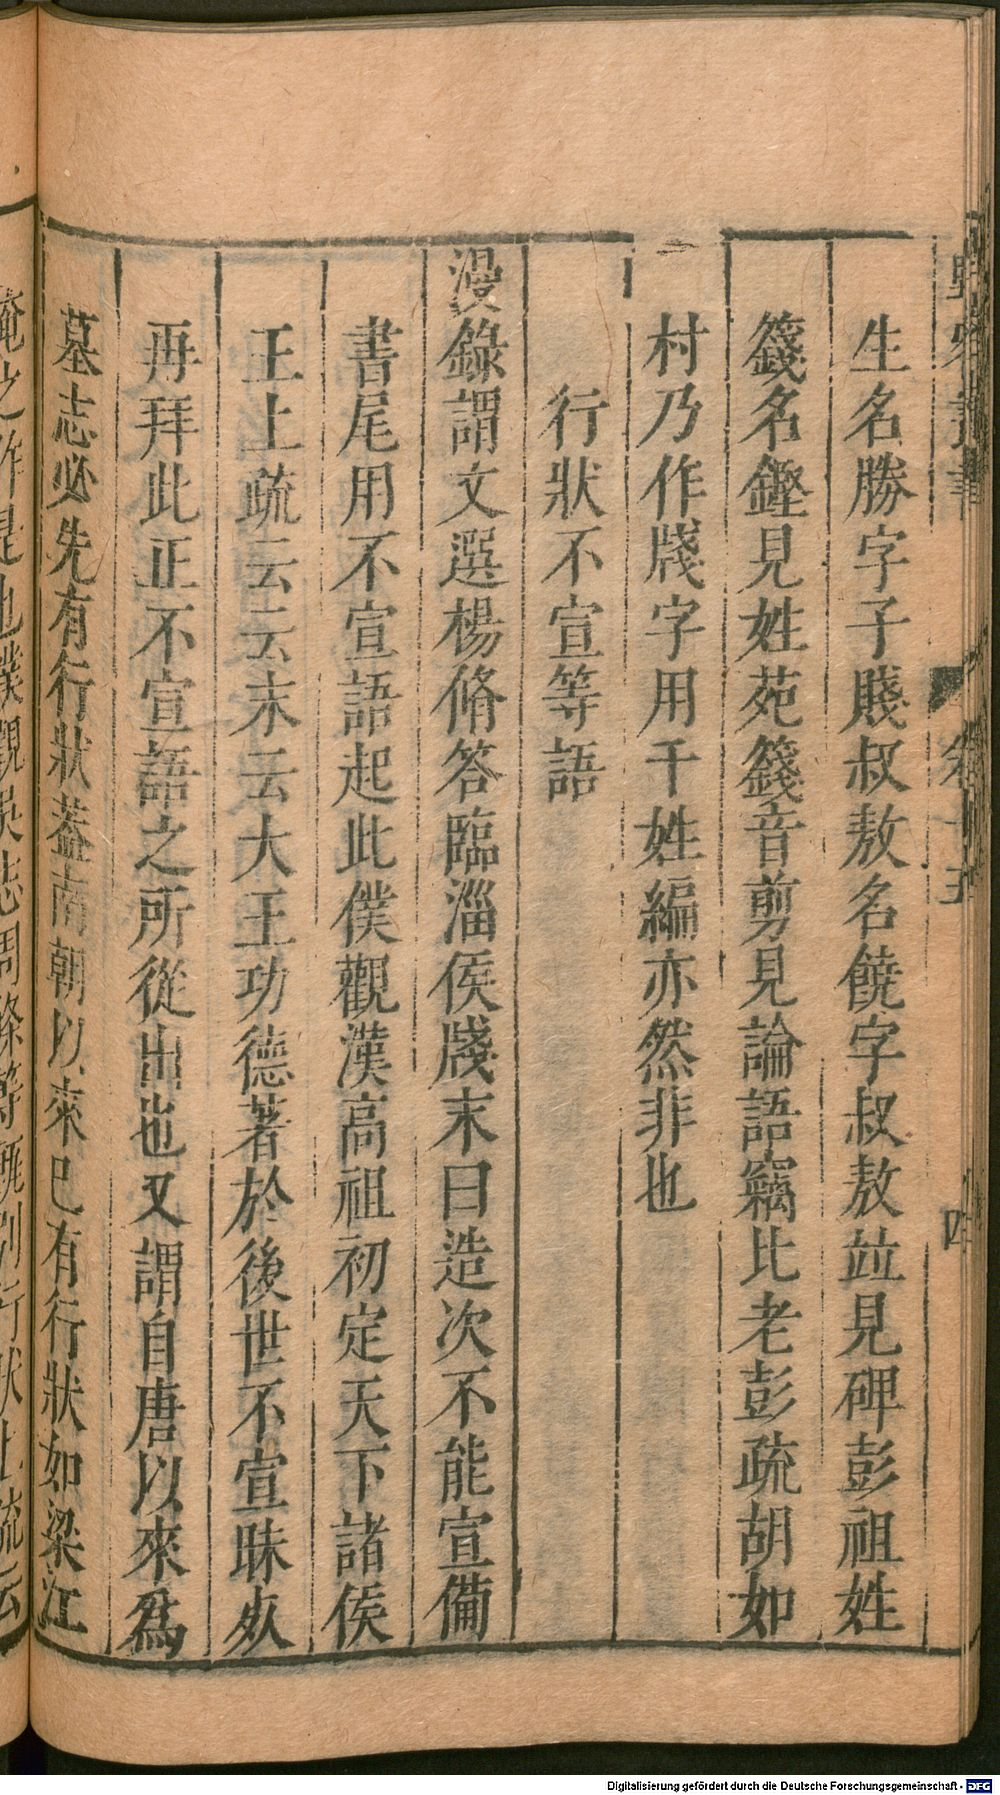 生名勝字子賤叔敖名饒字叔敖竝見碑彭祖姓
籛名鏗見姓苑籛音剪見論語竊比老彭疏胡如
村乃作牋字用千姓編亦然非也
行狀不宣等語
漫錄謂文選楊脩答臨淄侯牋末曰造次不能宣備
書尾用不宣語起此僕觀漢高祖初定天下諸侯
王上疏云云末云大王功德著於後世不宣昧死
再拜此正不宣語之所從出也又謂自唐以來爲
墓志必先有行狀葢南朝以來已有行狀如梁江
淹之作是也僕觀吳志周條等甄別行狀上疏云
卷十五
四
Digitalisierung gefördert durch die Deutsche Forschungsgemeinschaft - DFG